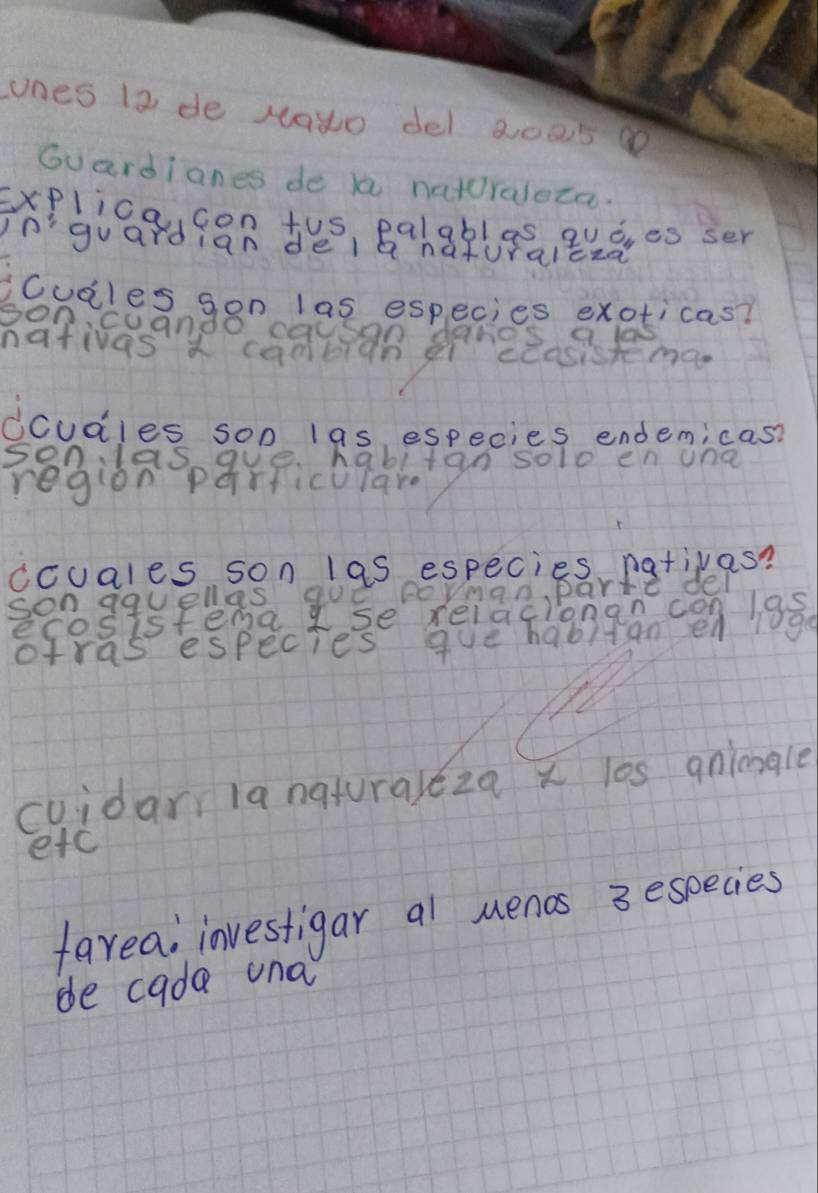 Lunes 12 de Mayo del 2025
Guardianes de la naturaleza.
Explica con tus palablas qué es ser
un guardian de la naturaleza
¿Cuáles son las especies exoticas?
son cuando causan daños a las
nativas y cambian el ecasistema.
¿cuáles son las especies endemicas?
son las que habitan solo en una
región particular.
¿cuales son las especies nativas?
son aquellas que forman parte del
ecosistema y se relacionan con las
otras especies que habitan en
cuidar la naturaleza y los animale
etc
tarea: investigar al menos 3 especies
de cada una